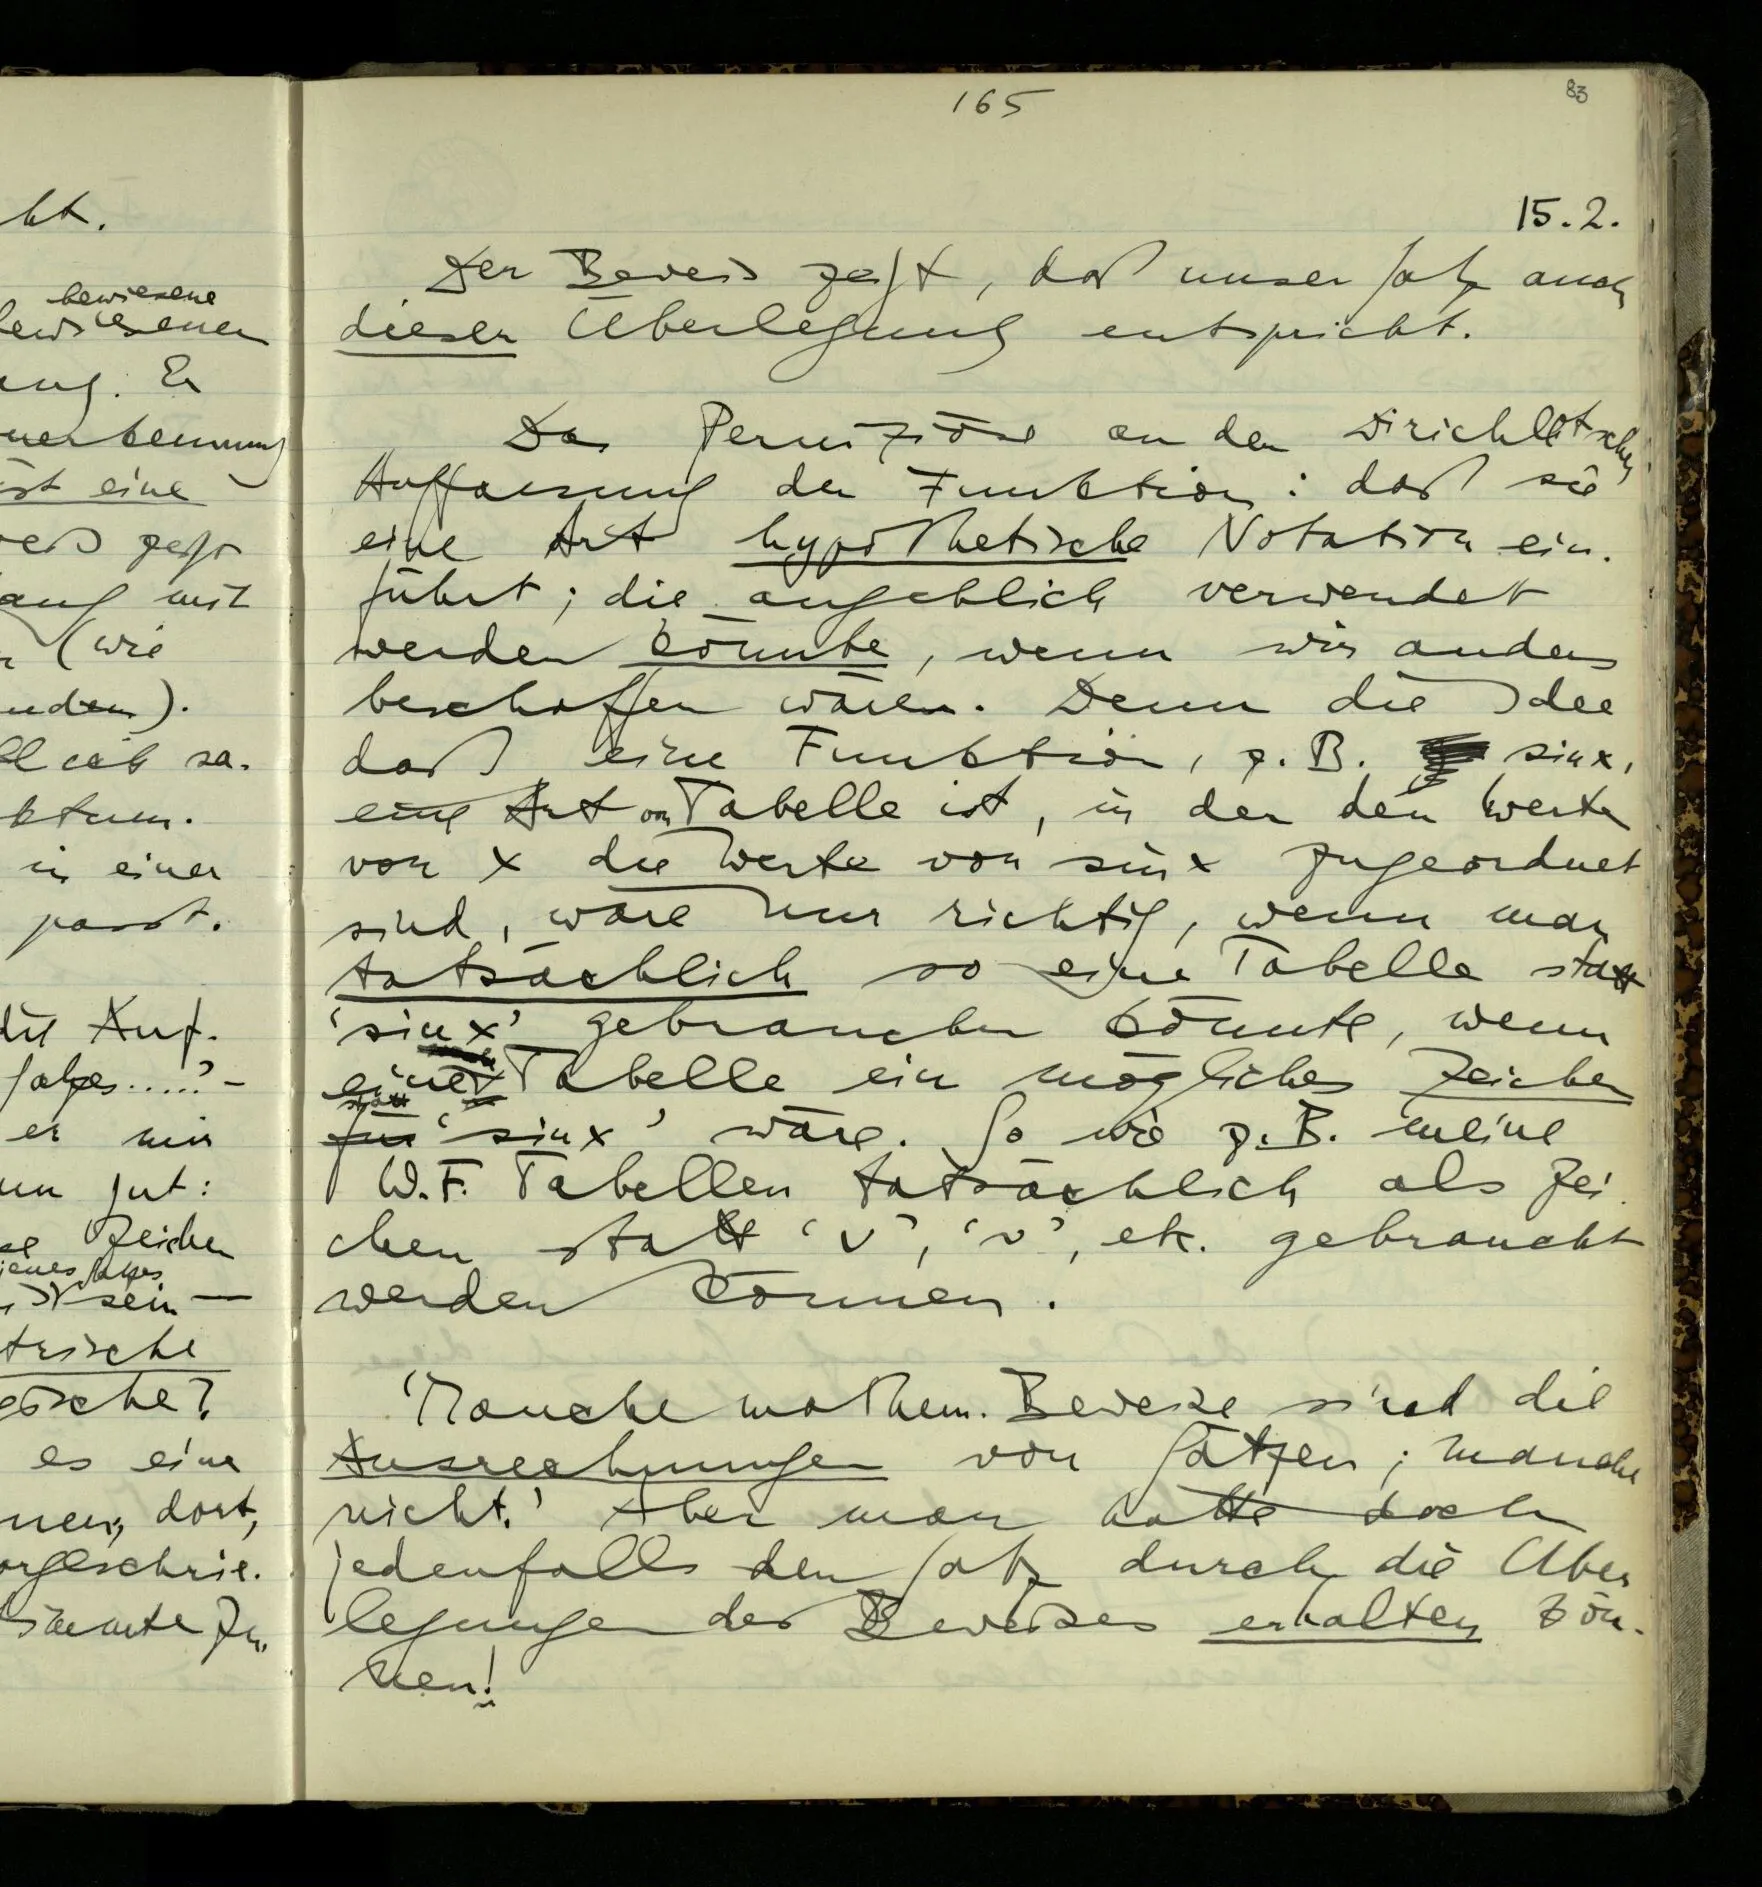 165
83
15.2.
Der Beweis zeigt, daß unser Satz auch
dieser Überlegung entspricht.
Das Perniziöse an der Dirichletschen
Auffassung der Funktion: daß sie
eine Art hypothetische Notation ein-
führt; die angeblich verwendet
werden könnte, wenn wir anders
beschaffen wären. Denn die Idee
daß eine Funktion, z.B. sin x,
eine Art von Tabelle ist, in der den Werten
von x die Werte von sin x zugeordnet
sind, wäre nur richtig, wenn man
tatsächlich so eine Tabelle statt
'sin x' gebrauchen könnte, wenn
eine Tabelle ein mögliches Zeichen
statt
für 'sin x' wäre. So wie z.B. meine
W.F. Tabellen tatsächlich als Zei-
chen statt '∨', '~', etc. gebraucht
werden können.
'Manche mathem. Beweise sind die
Ausrechnungen von Sätzen; manche
nicht.' Aber man hätte doch
jedenfalls den Satz durch die Über
legungen des Beweises erhalten kön-
nen!
ht.
bewiesene
bewiesenen
ung. Er
nerkennung
ist eine
zeigt
ang mit
(wie
nden).
sa-
ktum.
in einer
passt.
die Auf-
Satzes.....?' –
er mir
nun gut:
Zeichen
jenes Satzes
sein —
trische
gische?
es eine
nen, dort,
orgeschrie-